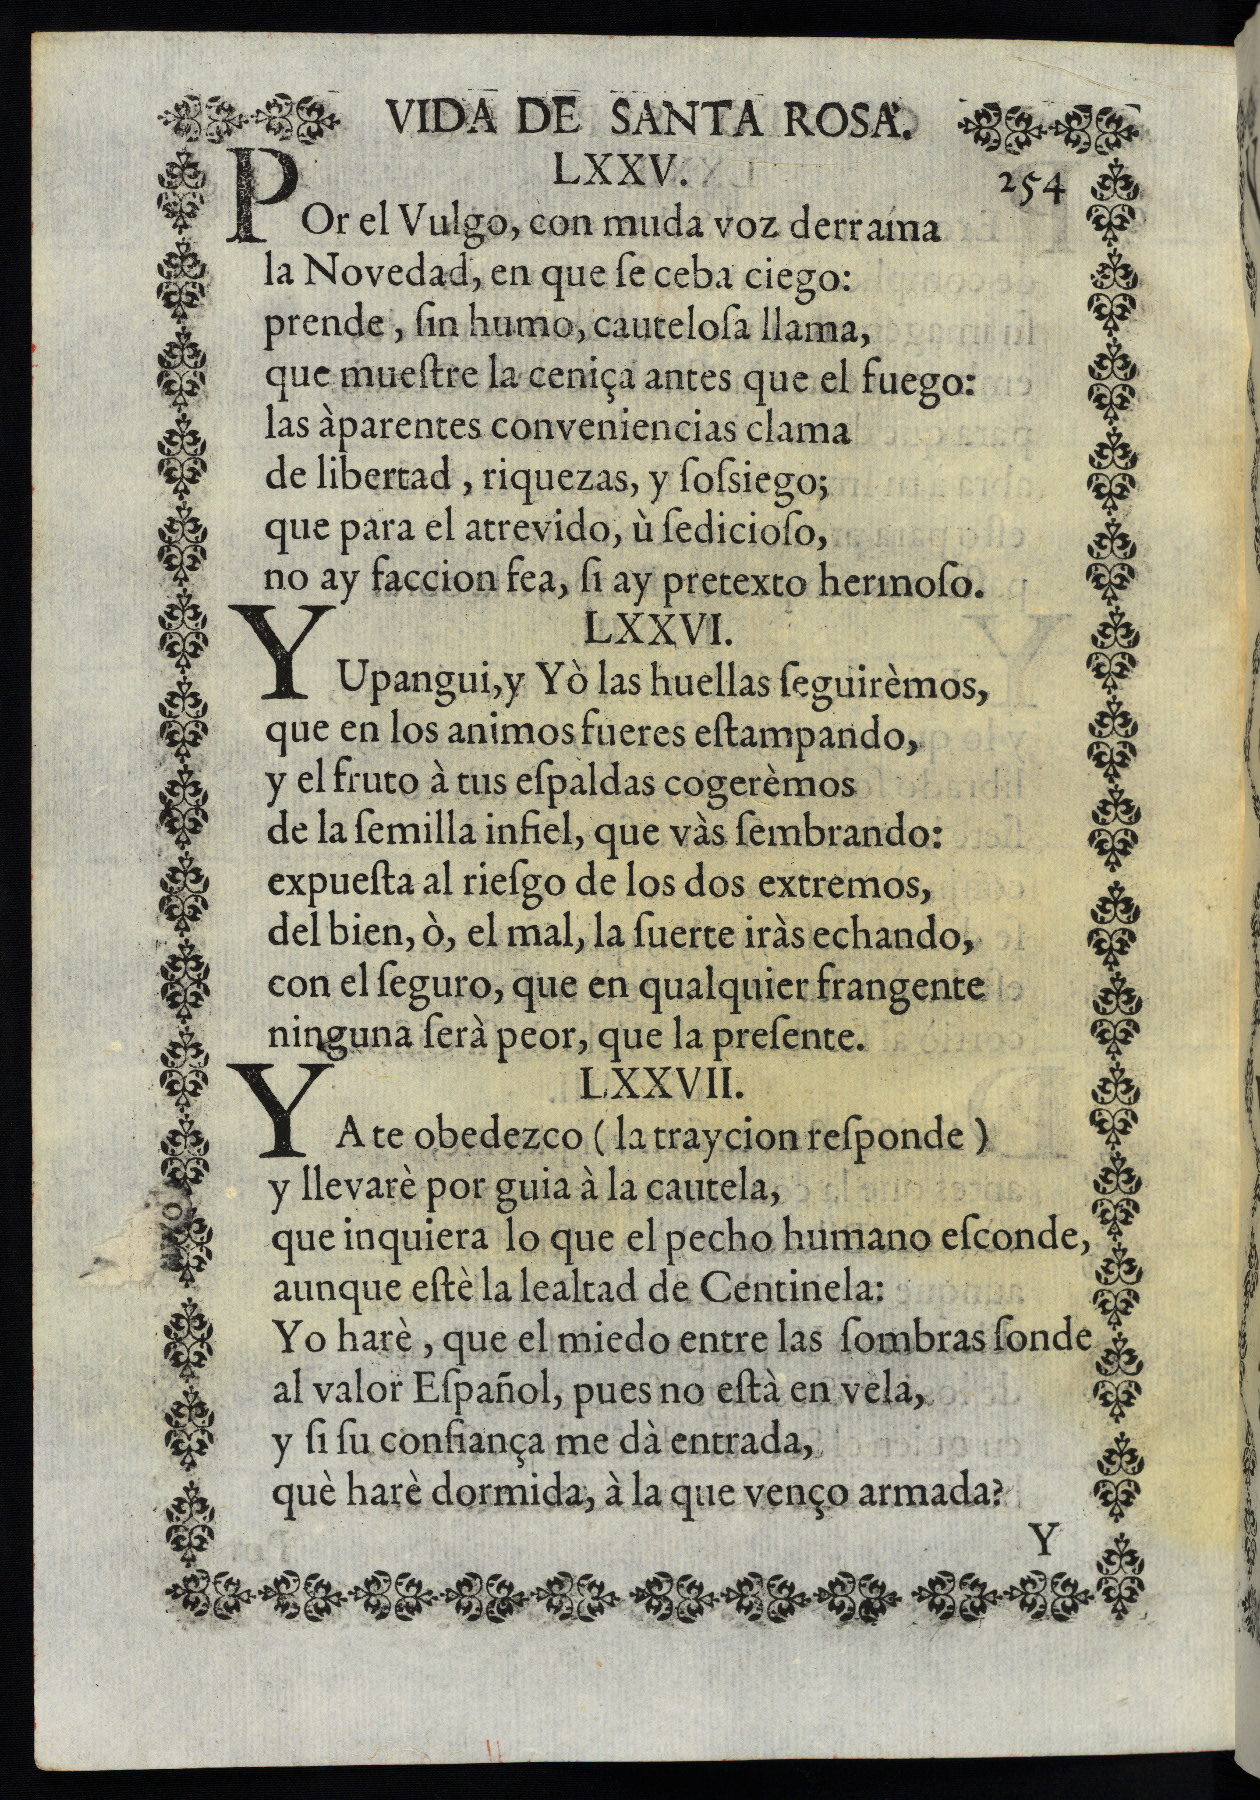 VIDA DE SANTA ROSA.
LXXV.
254
POr el Vulgo, con muda voz derrama
la Novedad, en que ſe ceba ciego:
prende, ſin humo, cauteloſa llama,
que mueſtre la ceniça antes que el fuego:
las àparentes conveniencias clama
de libertad, riquezas, y ſoſsiego;
que para el atrevido, ù ſedicioſo,
no ay faccion fea, ſi ay pretexto hermoſo.
LXXVI.
YUpangui, y Yò las huellas ſeguirèmos,
que en los animos fueres eſtampando,
y el fruto à tus eſpaldas cogerèmos
de la ſemilla infiel, que vàs ſembrando:
expueſta al rieſgo de los dos extremos,
del bien, ò, el mal, la ſuerte iràs echando,
con el ſeguro, que en qualquier frangente
ninguna ſerà peor, que la preſente.
LXXVII.
YA te obedezco (la traycion reſponde)
y llevarè por guia à la cautela,
que inquiera lo que el pecho humano eſconde,
aunque eſtè la lealtad de Centinela:
Yo harè, que el miedo entre las ſombras ſonde
al valor Eſpañol, pues no eſtà en vela,
y ſi ſu confiança me dà entrada,
què harè dormida, à la que venço armada?
Y